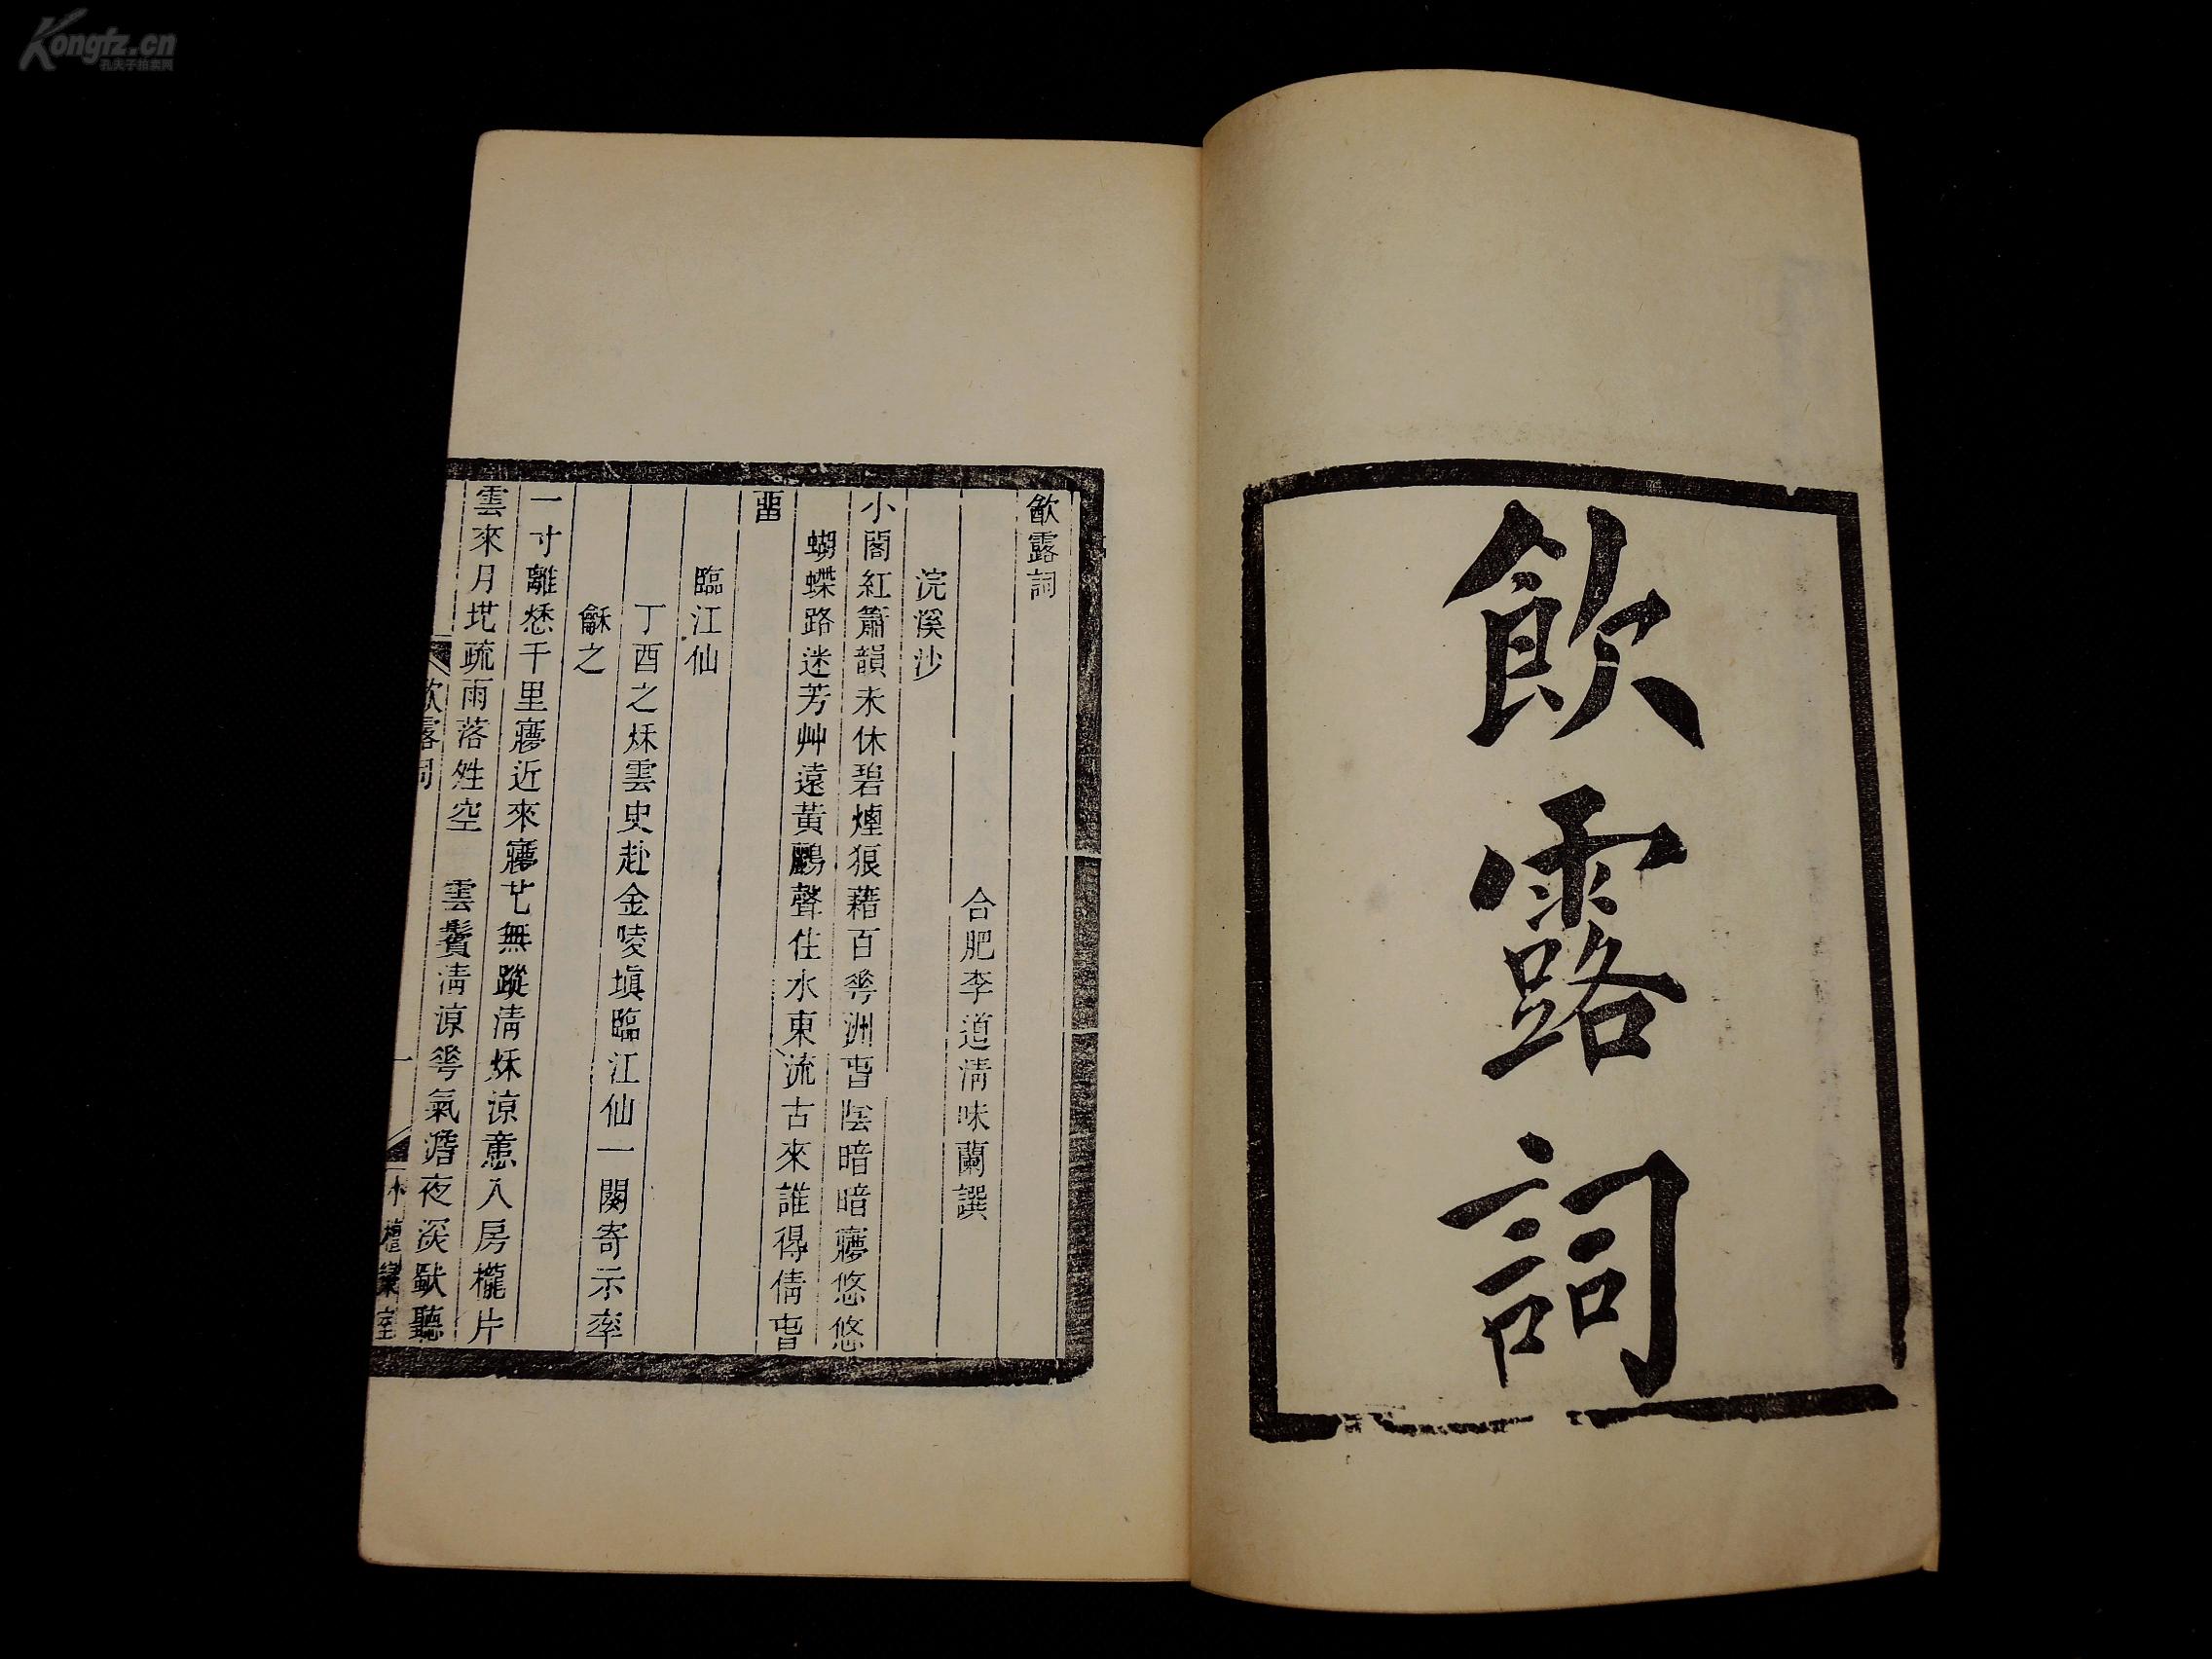 Kongfz.cn
孔夫子拍卖网
飲露詞
㱃露詞
合肥李道淸味蘭譔
浣溪沙
小閣紅簫韻未休碧煙狼藉百蕐洲旾陰暗暗㝱悠悠
蝴蝶路迷芳艸遠黃鸝聲住水東流古來誰得倩旾
畱
臨江仙
丁酉之秌雲史赴金陵塡臨江仙一闋寄示率
龢之
一寸離愁千里㝱近來㝱也無蹤淸秌涼意入房櫳片
雲來月㘽疏雨落䧹空　雲鬢淸涼蕐氣澹夜深猒聽
㱃露詞
一
小檀欒室